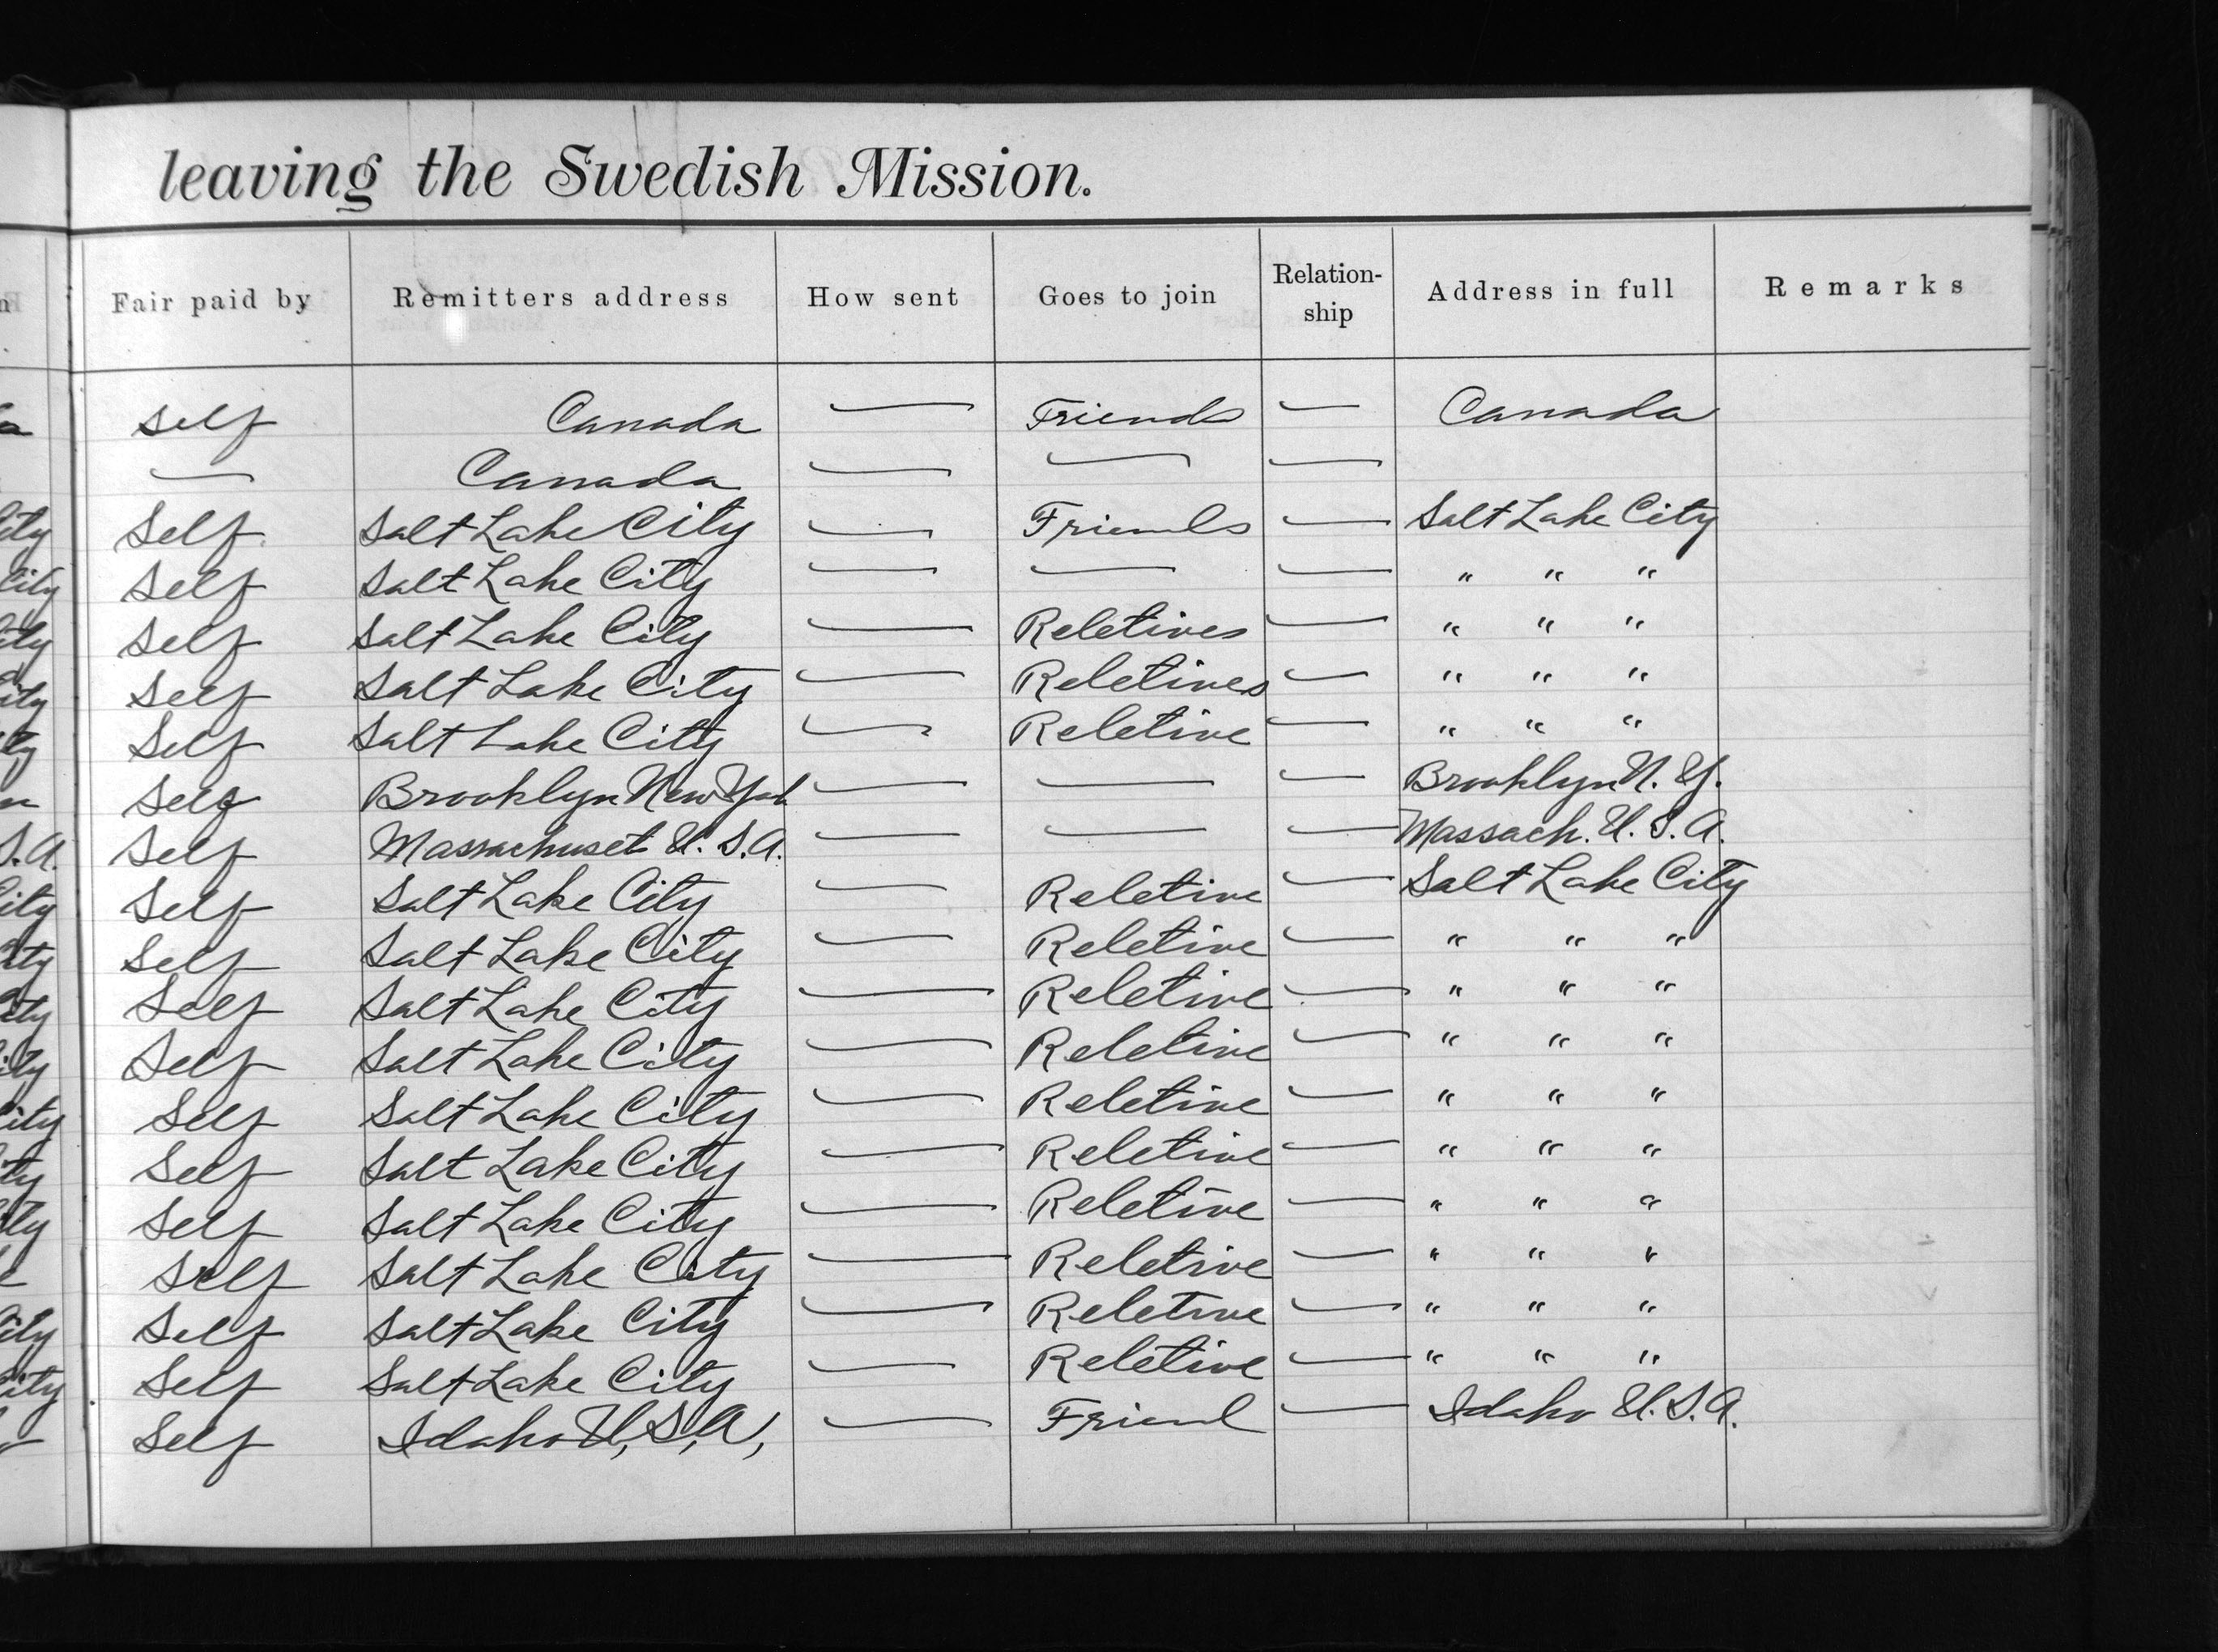 leaving the Swedish Mission.
Fair paid by Remitters address How sent Goes to join Relation-ship Address in full Remarks
Self Canada — Friends — Canada
— Canada — — —
City Self Salt Lake City — Friends — Salt Lake City
City Self Salt Lake City — — — " " "
City Self Salt Lake City — Reletives — " " "
City Self Salt Lake City — Reletives — " " "
ty Self Salt Lake City — Reletive — " " "
Self Brooklyn New York — — — Brooklyn N. Y.
S.A. Self Massachuset U. S. A. — — — Massach. U. S. A.
City Self Salt Lake City — Reletive — Salt Lake City
City Self Salt Lake City — Reletive — " " "
City Self Salt Lake City — Reletive — " " "
City Self Salt Lake City — Reletive — " " "
City Self Salt Lake City — Reletive — " " "
ty Self Salt Lake City — Reletive — " " "
City Self Salt Lake City — Reletive — " " "
Self Salt Lake City — Reletive — " " "
City Self Salt Lake City — Reletive — " " "
City Self Salt Lake City — Reletive — " " "
Self Idaho U, S, A, — Friend — Idaho U. S. A.